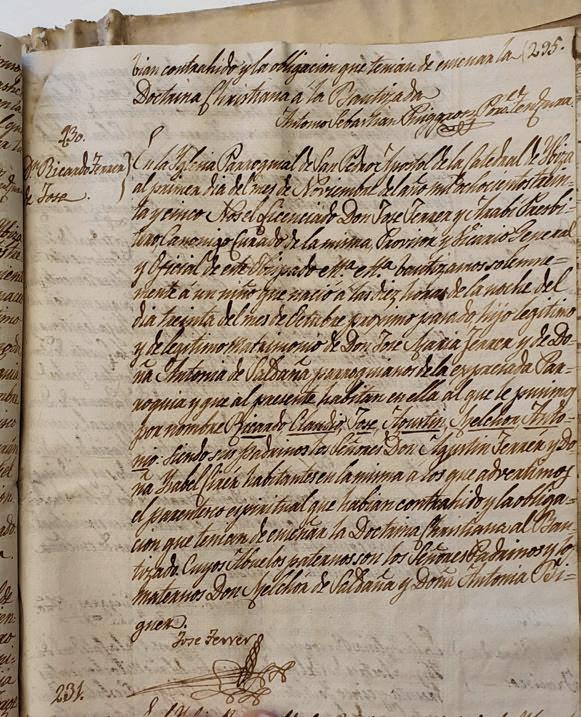 bian contrahido y la obligacion que tenian de enseñar la 295.
Doctrina Christiana à la Bautizada
Antonio Sebastian
230.
Dn. Ricardo Ferrer
de Jose.
En la Iglesia Parroquial de San Pedro Apostol de la Catedral de Ibiza
al primer dia del mes de Noviembre del año mil ochocientos trein=
ta y cinco Nos el Licenciado Don Jose Ferrer y Presbi=
tero Canonigo Curado de la misma Provisor y Vicario General
y Oficial de este Obispado bautizamos solemne=
mente á un niño que nació á las diez horas de la noche del
dia treinta del mes de Octubre proximo pasado hijo legitimo
y de legitimo Matrimonio de Don Jose Maria Ferrer y de Do=
ña Antonia de Saldaña parroquianos de la expresada Par=
roquia y que al presente habitan en ella al que le pusimos
por nombre Ricardo Claudio Jose Agustin, Melchor Anto=
nio. Siendo sus padrinos los Señores Don Agustin Ferrer y Do=
ña Ysabel habitantes en la misma a los que advertimos
el parentesco espiritual que habian contrahido y la obliga=
cion que tenian de enseñar la Doctrina Christiana al Bau=
tizado. Cuyos Abuelos paternos son los Señores Padrinos y los
maternos Don Melchor de Saldaña y Doña Antonia
Jose Ferrer
231.